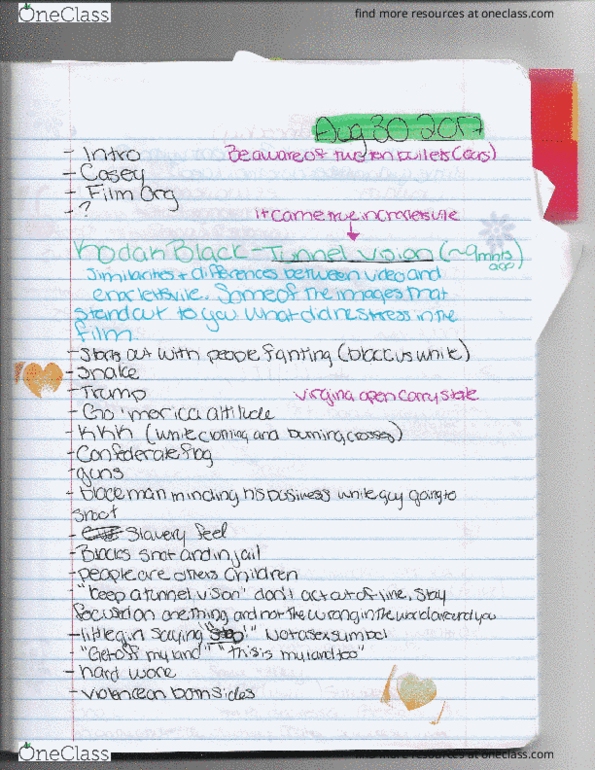 OneClass
find more resources at oneclass.com
Aug 30 2017
- Intro
Be aware of bullets (ours)
- Casey
- Film Org
- ?
it came true in charlottesville
Kodak Black - Tunnel Vision (~9 mnts ago)
Similarites + differences between video and
charlottesville. Some of the images that
stand out to you what did he stress in the
film.
- Starts out with people fighting (black vs white)
- snake
- Trump
virgina open carry state
- Cho 'merica attitude
- KKK (white clothing and burning crosses)
- Confederate flag
- guns
- black man minding his business white guy going to
shoot
- Slavery feel
- Blacks shot and in jail
- people are others children
- "keep a tunnel vision" don't act out of line, stay
focused on one thing and not the wrong in the world around you
- little girl saying "stop!" Not a sex symbol
- "Get off my land" "this is my land too"
- hard work
- violence on both sides
OneClass
find more resources at oneclass.com